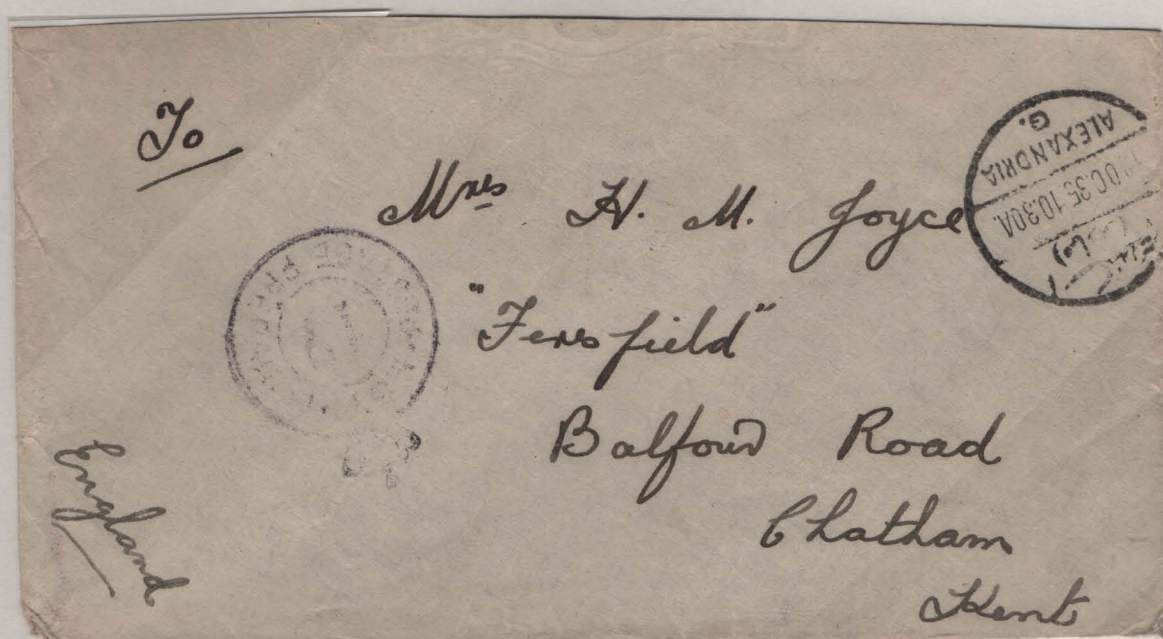 To
Mrs H. M. Joyce
"Fersfield"
Balfour Road
Chatham
Kent
England
ALEXANDRIA
G.
OC.35.10.30A